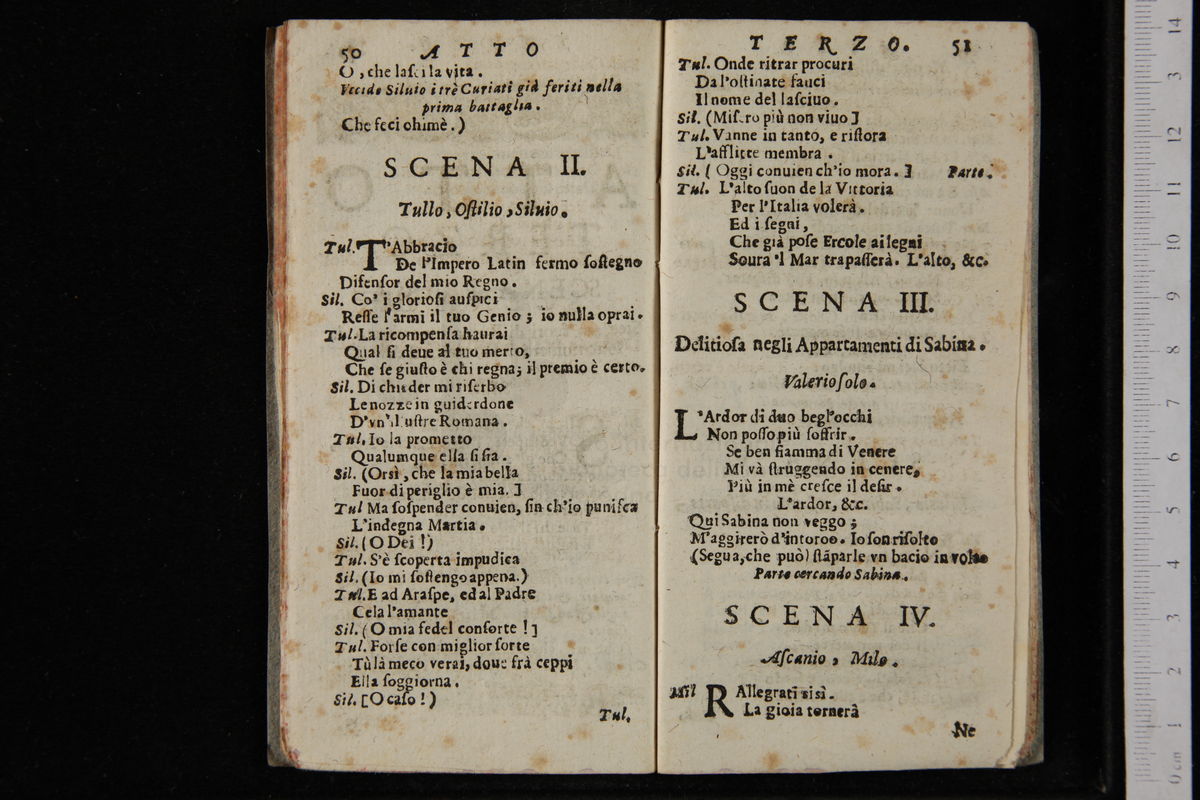 50 ATTO
O, che lasci la vita.
Vccide Siluio i trè Curiati già feriti nella
prima battaglia.
Che feci ohimè.)
SCENA II.
Tullo, Ostilio, Siluio.
Tul. T'Abbraccio
De l'Impero Latin fermo sostegno
Difensor del mio Regno.
Sil. Co' i gloriosi auspici
Resse l'armi il tuo Genio; io nulla oprai.
Tul. La ricompensa haurai
Qual si deue al tuo merto,
Che se giusto è chi regna; il premio è certo.
Sil. Di chieder mi riserbo
Le nozze in guiderdone
D'vn'illustre Romana.
Tul. Io la prometto
Qualumque ella si sia.
Sil. (Orsì, che la mia bella
Fuor di periglio è mia.]
Tul Ma sospender conuien, sin ch'io punisca
L'indegna Martia.
Sil. (O Dei!)
Tul. S'è scoperta impudica
Sil. (Io mi sostengo appena.)
Tul. E ad Araspe, ed al Padre
Cela l'amante
Sil. (O mia fedel consorte!]
Tul. Forse con miglior sorte
Tù là meco verai, doue frà ceppi
Ella soggiorna.
Sil. [O caso!)
Tul.
TERZO. 51
Tul. Onde ritrar procuri
Da l'ostinate fauci
Il nome del lasciuo.
Sil. (Misero più non viuo]
Tul. Vanne in tanto, e ristora
L'afflitte membra.
Sil. ( Oggi conuien ch'io mora.] Parte.
Tul. L'alto suon de la Vittoria
Per l'Italia volerà.
Ed i segni,
Che già pose Ercole ai legni
Soura 'l Mar trapasserà. L'alto, &c.
SCENA III.
Delitiosa negli Appartamenti di Sabina.
Valerio solo.
L'Ardor di duo begl'occhi
Non posso più soffrir.
Se ben fiamma di Venere
Mi và struggendo in cenere,
Più in mè cresce il desir.
L'ardor, &c.
Qui Sabina non veggo;
M'aggirerò d'intoroo. Io son risolto
(Segua, che può) stāparle vn bacio in volto
Parte cercando Sabina.
SCENA IV.
Ascanio, Milo.
Mil RAllegrati sì sì.
La gioia tornerà
Ne